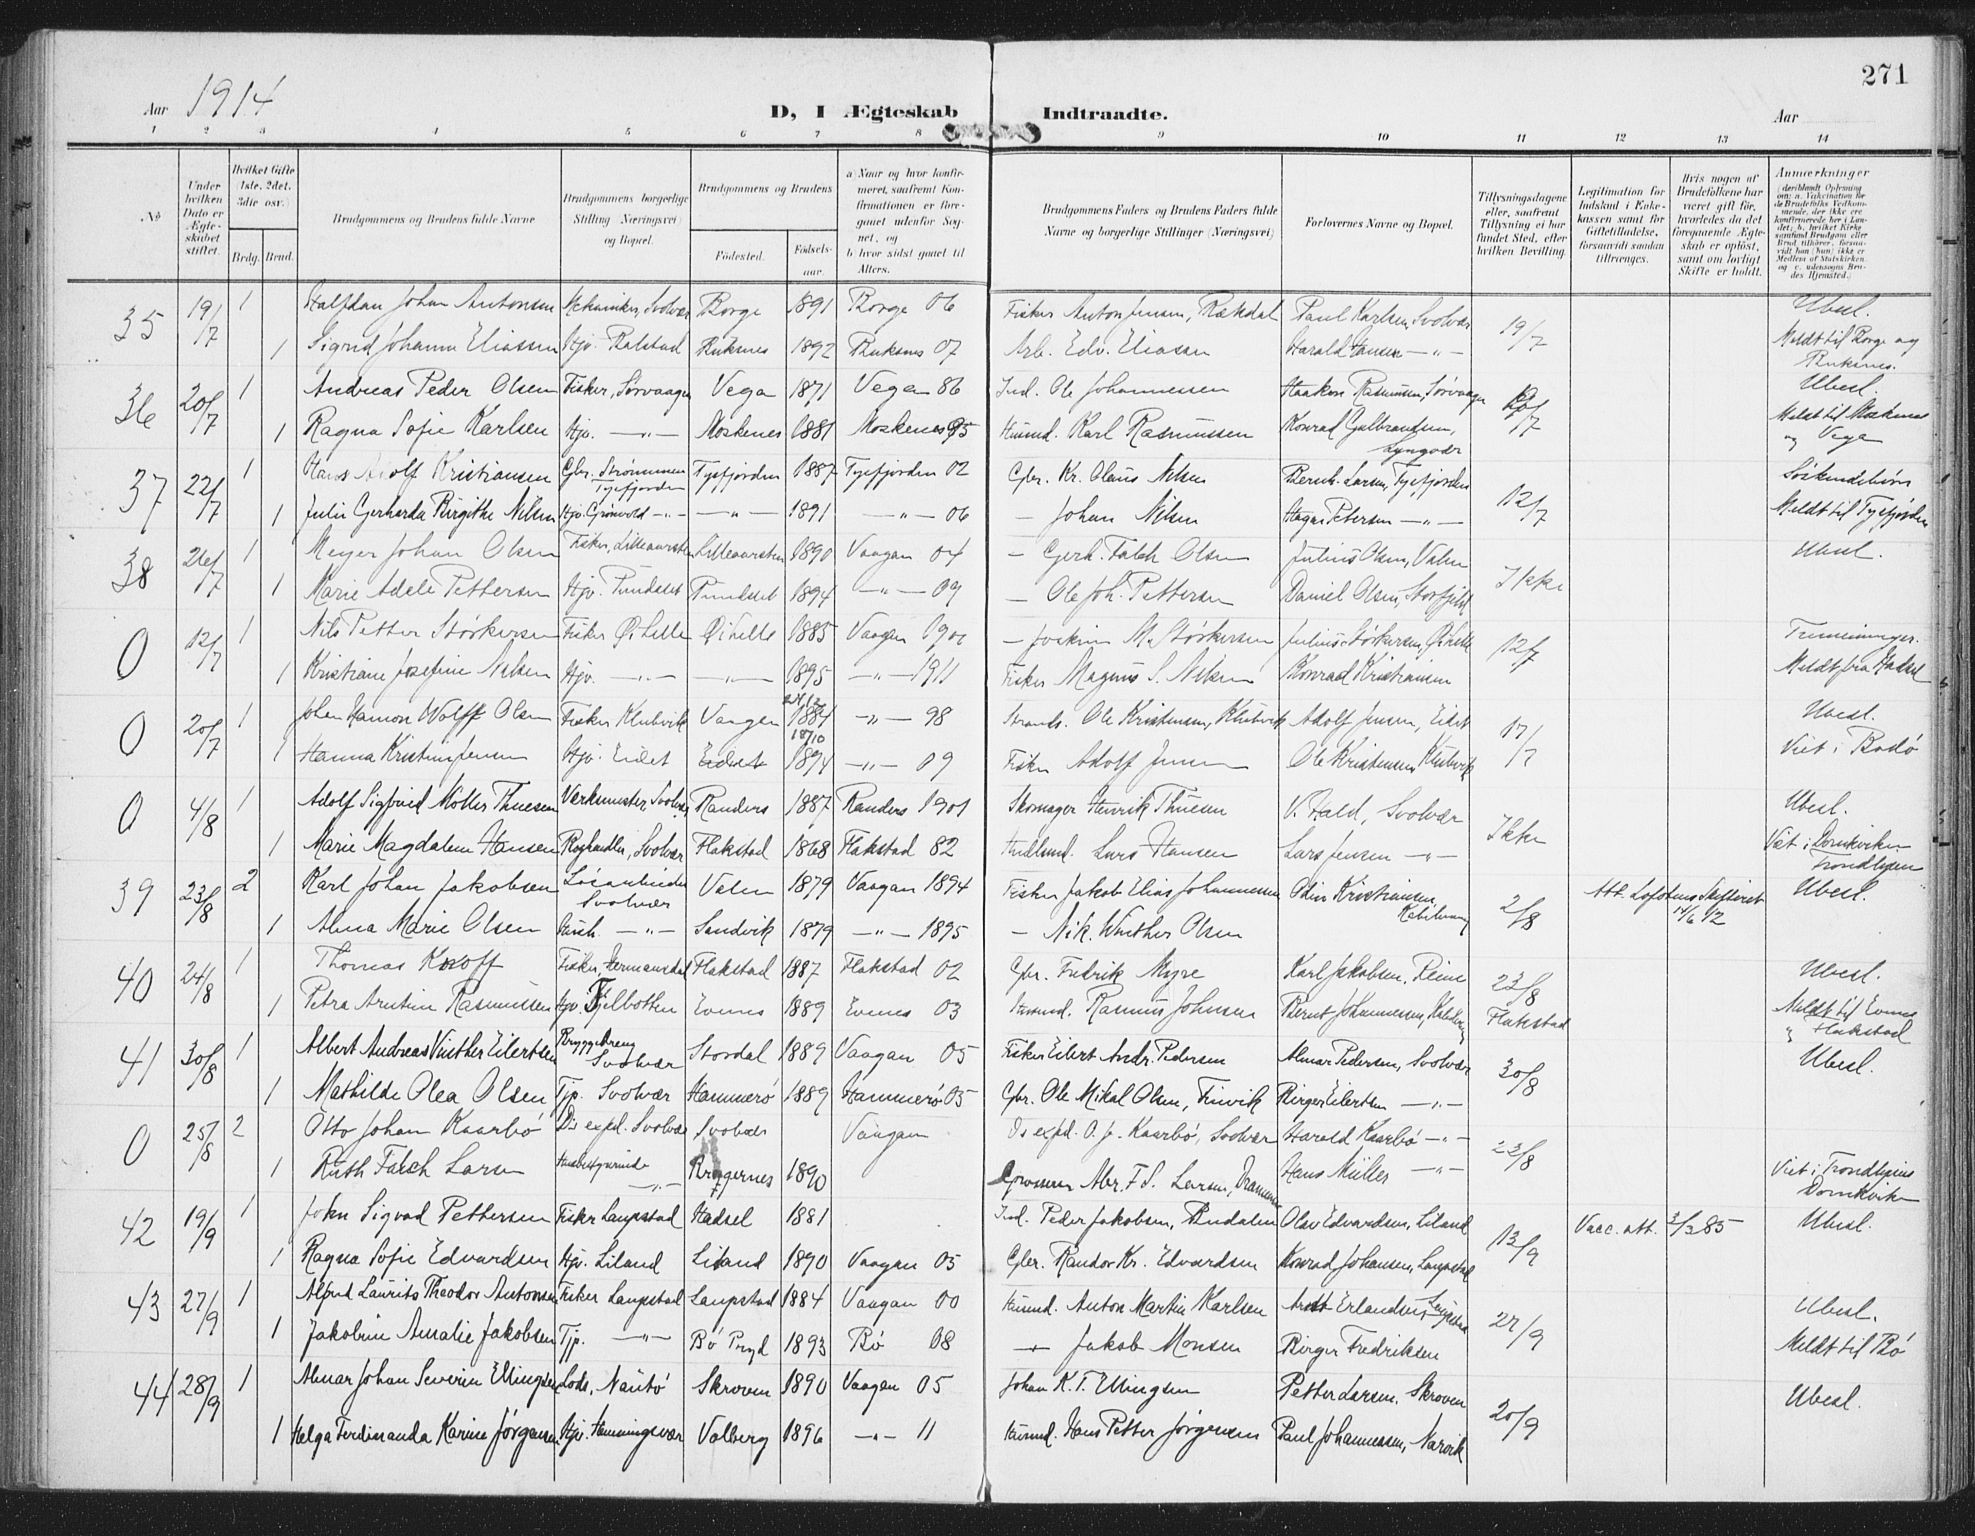 271
Aar 1914
D, I Ægteskab Indtraadte. Aar
1 2 3 4 5 6 7 8 9 10 11 12 13 14
No
Under hvilken Dato er Ægteskabet stiftet.
Hvilket Gifte (1ste, 2det, 3die osv.)
Brdg. Brud.
Brudgommens og Brudens fulde Navne
Brudgommens borgerlige Stilling (Næringsvei) og Bopæl.
Brudgommens og Brudens
Fødested. Fødselsaar.
a) Naar og hvor konfirmeret, saafremt Konfirmationen er foregaaet udenfor Sognet, og
b) hvor sidst gaaet til Alters.
Brudgommens Faders og Brudens Faders fulde Navne og borgerlige Stillinger (Næringsvei)
Forlovernes Navne og Bopæl.
Tillysningsdagene eller, saafremt Tillysning ei har fundet Sted, efter hvilken Bevilling.
Legitimation for Indskud i Enkekassen samt for Giftetilladelse, forsaavidt saadan tiltrænges.
Hvis nogen af Brudefolkene har været gift før, hvorledes da det foregaaende Ægteskab er opløst, samt om lovligt Skifte er holdt.
Anmærkninger
35 19/7 1 Halfdan Johan Antonsen Mekaniker, Svolvær Borge 1891 Borge 06 Fisker Anton Jensen, Paul Karlsen, Svolvær 19/7 Ubesl.
1 Sigrid Johanne Eliassen Hjv. Balstad Buksnes 1892 Buksnes 07 Arb. Edv. Eliasen Harald Hansen —„— Meldt til Borge og Buksnes.
36 20/7 1 Andreas Peder Olsen Fisker, Sørvaagen Vega 1871 Vega 86 Ind. Ole Johannessen Haakon Rasmussen, Sørvaagen Ubesl.
1 Ragna Sofie Karlsen Hjv. —„— Moskenes 1881 Moskenes 95 Husmd. Karl Rasmussen Konrad Gulbrandsen, Lyngvær Meldt til Moskenes og Vega
37 22/7 1 Hans Adolf Kristiansen Gbr. Strømmen Tysfjorden Tysfjorden 1887 Tysfjorden 02 Gbr. Kr. Olaus Nilsen Bernh. Larsen, Tysfjorden 12/7 Søskendebørn
1 Julie Gerharda Birgithe Nilsen Hjv. Grønvold —„— —„— 1891 —„— 06 — Johan Nilsen Hagar Petersen —„— Meldt til Tysfjorden
38 26/7 1 Meyer Johan Olsen Fisker, Lilleaursten Lilleaursten 1890 Vaagan 04 — Gerh. Falck Olsen Julius Olsen, Valen Ikke Ubesl.
1 Marie Adele Pettersen Hjv. Pundslet Pundslet 1894 —„— 09 — Ole Joh. Pettersen Daniel Olsen, Storfjeld
0 12/7 1 Nils Petter Størkersen Fisker Øihelle Øihelle 1885 Vaagan — Joakim M. Størkersen Julius Størkersen, Øihelle 12/7 Tremenninger.
1 Kristiane Josefine Nilsen Hjv. —„— —„— 1895 —„— 1911 Fisker Magnus S. Nilsen Konrad Kristiansen Meldt fra Hadsel
0 20/7 1 Johan Hamon Wolff Olsen Fisker Klubvik Vaagan 1884 —„— 98 Strands. Ole Kristensen, Klubvik Adolf Jensen, Eidet Ubesl.
1 Hanna Kristine Jensen Hjv. Eidet Eidet 18/10 1894 —„— 09 Fisker Adolf Jensen Ole Kristensen Klubvik Viet i Bodø
0 4/8 1 Adolf Sigfried Møller Thuesen Værkmester, Svolvær Randers 1887 Randers 1901 Skomager Henrik Thuesen V. Hald, Svolvær Ikke Ubesl.
1 Marie Magdalene Hansen Boghandler, Svolvær Flakstad 1868 Flakstad 82 Lars Hansen Lars Jensen —„— Viet i Domkirken Trondhjem
39 23/8 2 Karl Johan Jakobsen Løsarbeider Svolvær Valen 1879 Vaagan 1894 Fisker Jakob Elias Johannessen Odin Kristiansen, Kabelvaag 2/8 Att. Lofotens Skifteret 14/6 12 Ubesl.
1 Alma Marie Olsen Hush. —„— Sandvik 1879 —„— 1895 — Nik. Winther Olsen
40 24/8 1 Thomas Fisker, Hermansdal Flakstad 1887 Flakstad 02 Gbr. Fredrik Myre Karl Jakobsen, Reine 23/8 Flakstad Ubesl.
1 Petra Arntine Rasmussen Hjv. Evenes 1889 Evenes 03 Husmd. Rasmus Johnsen Bernt Johannessen, Meldt til Evenes „ Flakstad
41 30/8 1 Albert Andreas Vinther Eilertsen Bryggedreng Svolvær Stordal 1889 Vaagan 05 Fisker Eilert Andr. Pedersen Almar Pedersen, Svolvær 30/8 Ubesl.
1 Mathilde Olea Olsen Tjp. Svolvær Hammerø 1889 Hammerø 05 Gbr. Ole Mikal Olsen, Finvik Birger Eilertsen —„—
0 25/8 2 Otto Johan Kaarbø Ds exped. Svolvær Svolvær Vaagan Ds exped. O. J. Kaarbø, Svolvær Harald Kaarbø —„— 23/8
1 Ruth Falch Larsen —„— Bragernes 1890 Grosserer Abr. F. S. Larsen, Drammen Hans Müller —„— Viet i Trondhjems Domkirke
42 19/9 1 John Sigvad Pettersen Fisker Laupstad Hadsel 1881 Ind. Peder Jakobsen, Olav Edvardsen, Liland 13/9 Vacc. att. 3/3 85 Ubesl.
1 Ragna Sofie Edvardsen Hjv. Liland Liland 1890 Vaagan 05 Gbr. Randor Kr. Edvardsen Konrad Johansen, Laupstad
43 27/9 1 Alfred Laurits Theodor Antonsen Fisker Laupstad Laupstad 1884 Vaagan 00 Husmd. Anton Martin Karlsen Erlandsen, Laupstad 27/9 Ubesl.
1 Jakobine Amalie Jakobsen Tjp. —„— Bø Pryd 1893 Bø 08 —„— Jakob Monsen Birger Fredriksen Meldt til Bø
44 28/9 1 Almar Johan Severin Ellingsen Lods, Nautø Skroven 1890 Vaagan 05 Johan K. T. Ellingsen Petter Larsen, Skroven 20/9 Ubesl.
1 Helga Ferdinanda Karine Jørgensen Hjv. Henningsvær Valberg 1896 —„— 11 Husmd. Hans Petter Jørgensen Paul Johannessen, Narvik